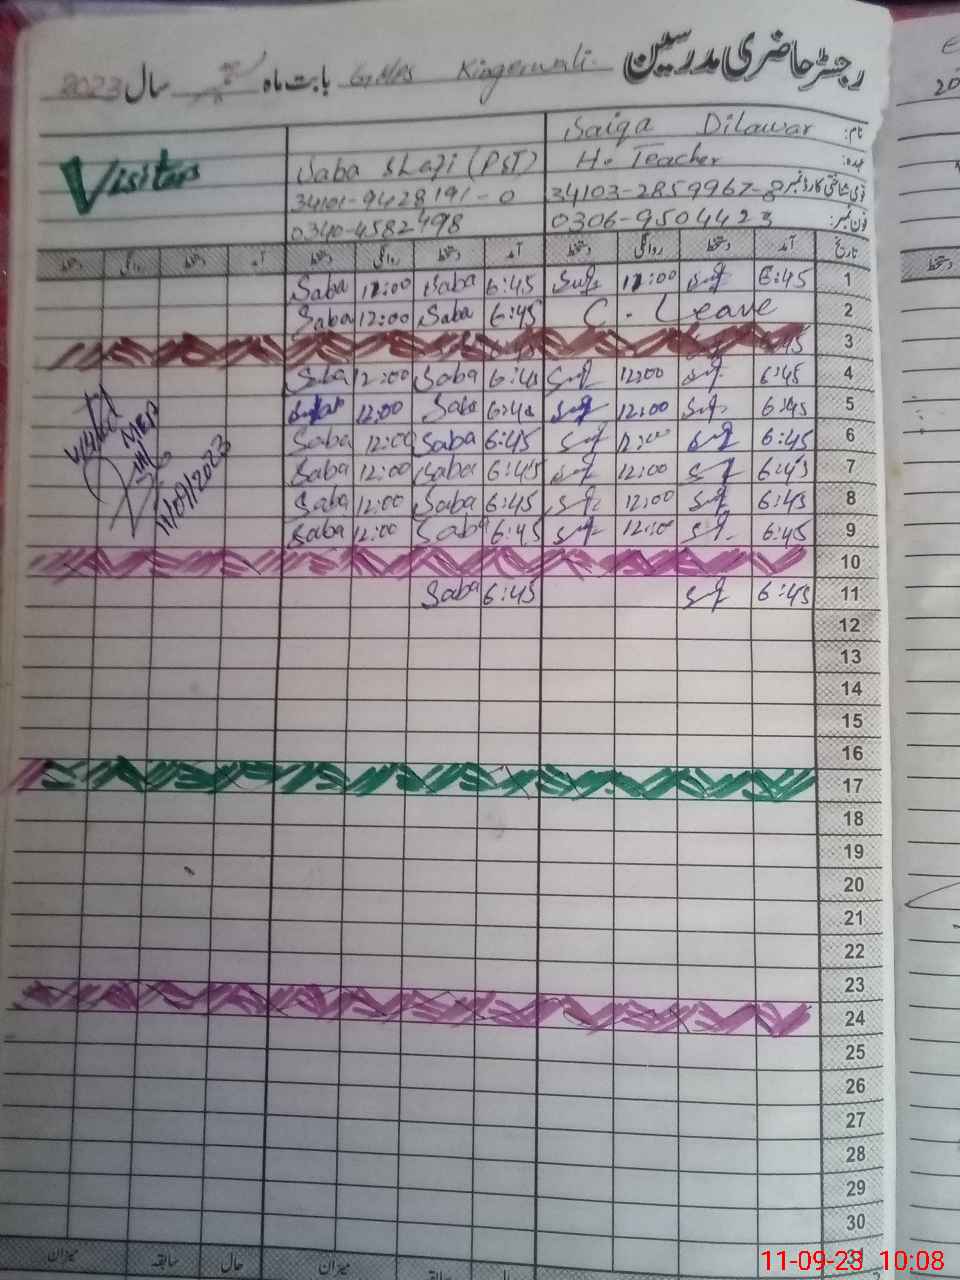 رجسٹر حاضری مدرسین بابت ماہ ستمبر سال 2023
Saiqa Dilawar نام:
Visitors Saba Shafi (PST) H. Teacher عہدہ:
34101-9428191-0 34103-2859967-8 قومی شناختی کارڈ نمبر
0340-4582498 0306-9504423 فون نمبر:
تاریخ آمد دستخط روانگی دستخط آمد دستخط روانگی دستخط آمد دستخط روانگی دستخط
Saba 11:00 Saba 6:45 11:00 6:45 1
Saba 12:00 Saba 6:45 C. Leave 2
3
Saba 12:00 Saba 6:45 12:00 6:45 4
12:00 Saba 6:45 12:00 6:45 5
Saba 12:00 Saba 6:45 12:00 6:45 6
Saba 12:00 Saba 6:45 12:00 6:45 7
Saba 12:00 Saba 6:45 12:00 6:45 8
Saba 12:00 Saba 6:45 12:00 6:45 9
Visited
MEA
11/09/2023
10
Saba 6:45 6:45 11
12
13
14
15
16
17
18
19
20
21
22
23
24
25
26
27
28
29
30
31
میزان حال سابقہ میزان
11-09-23 10:08